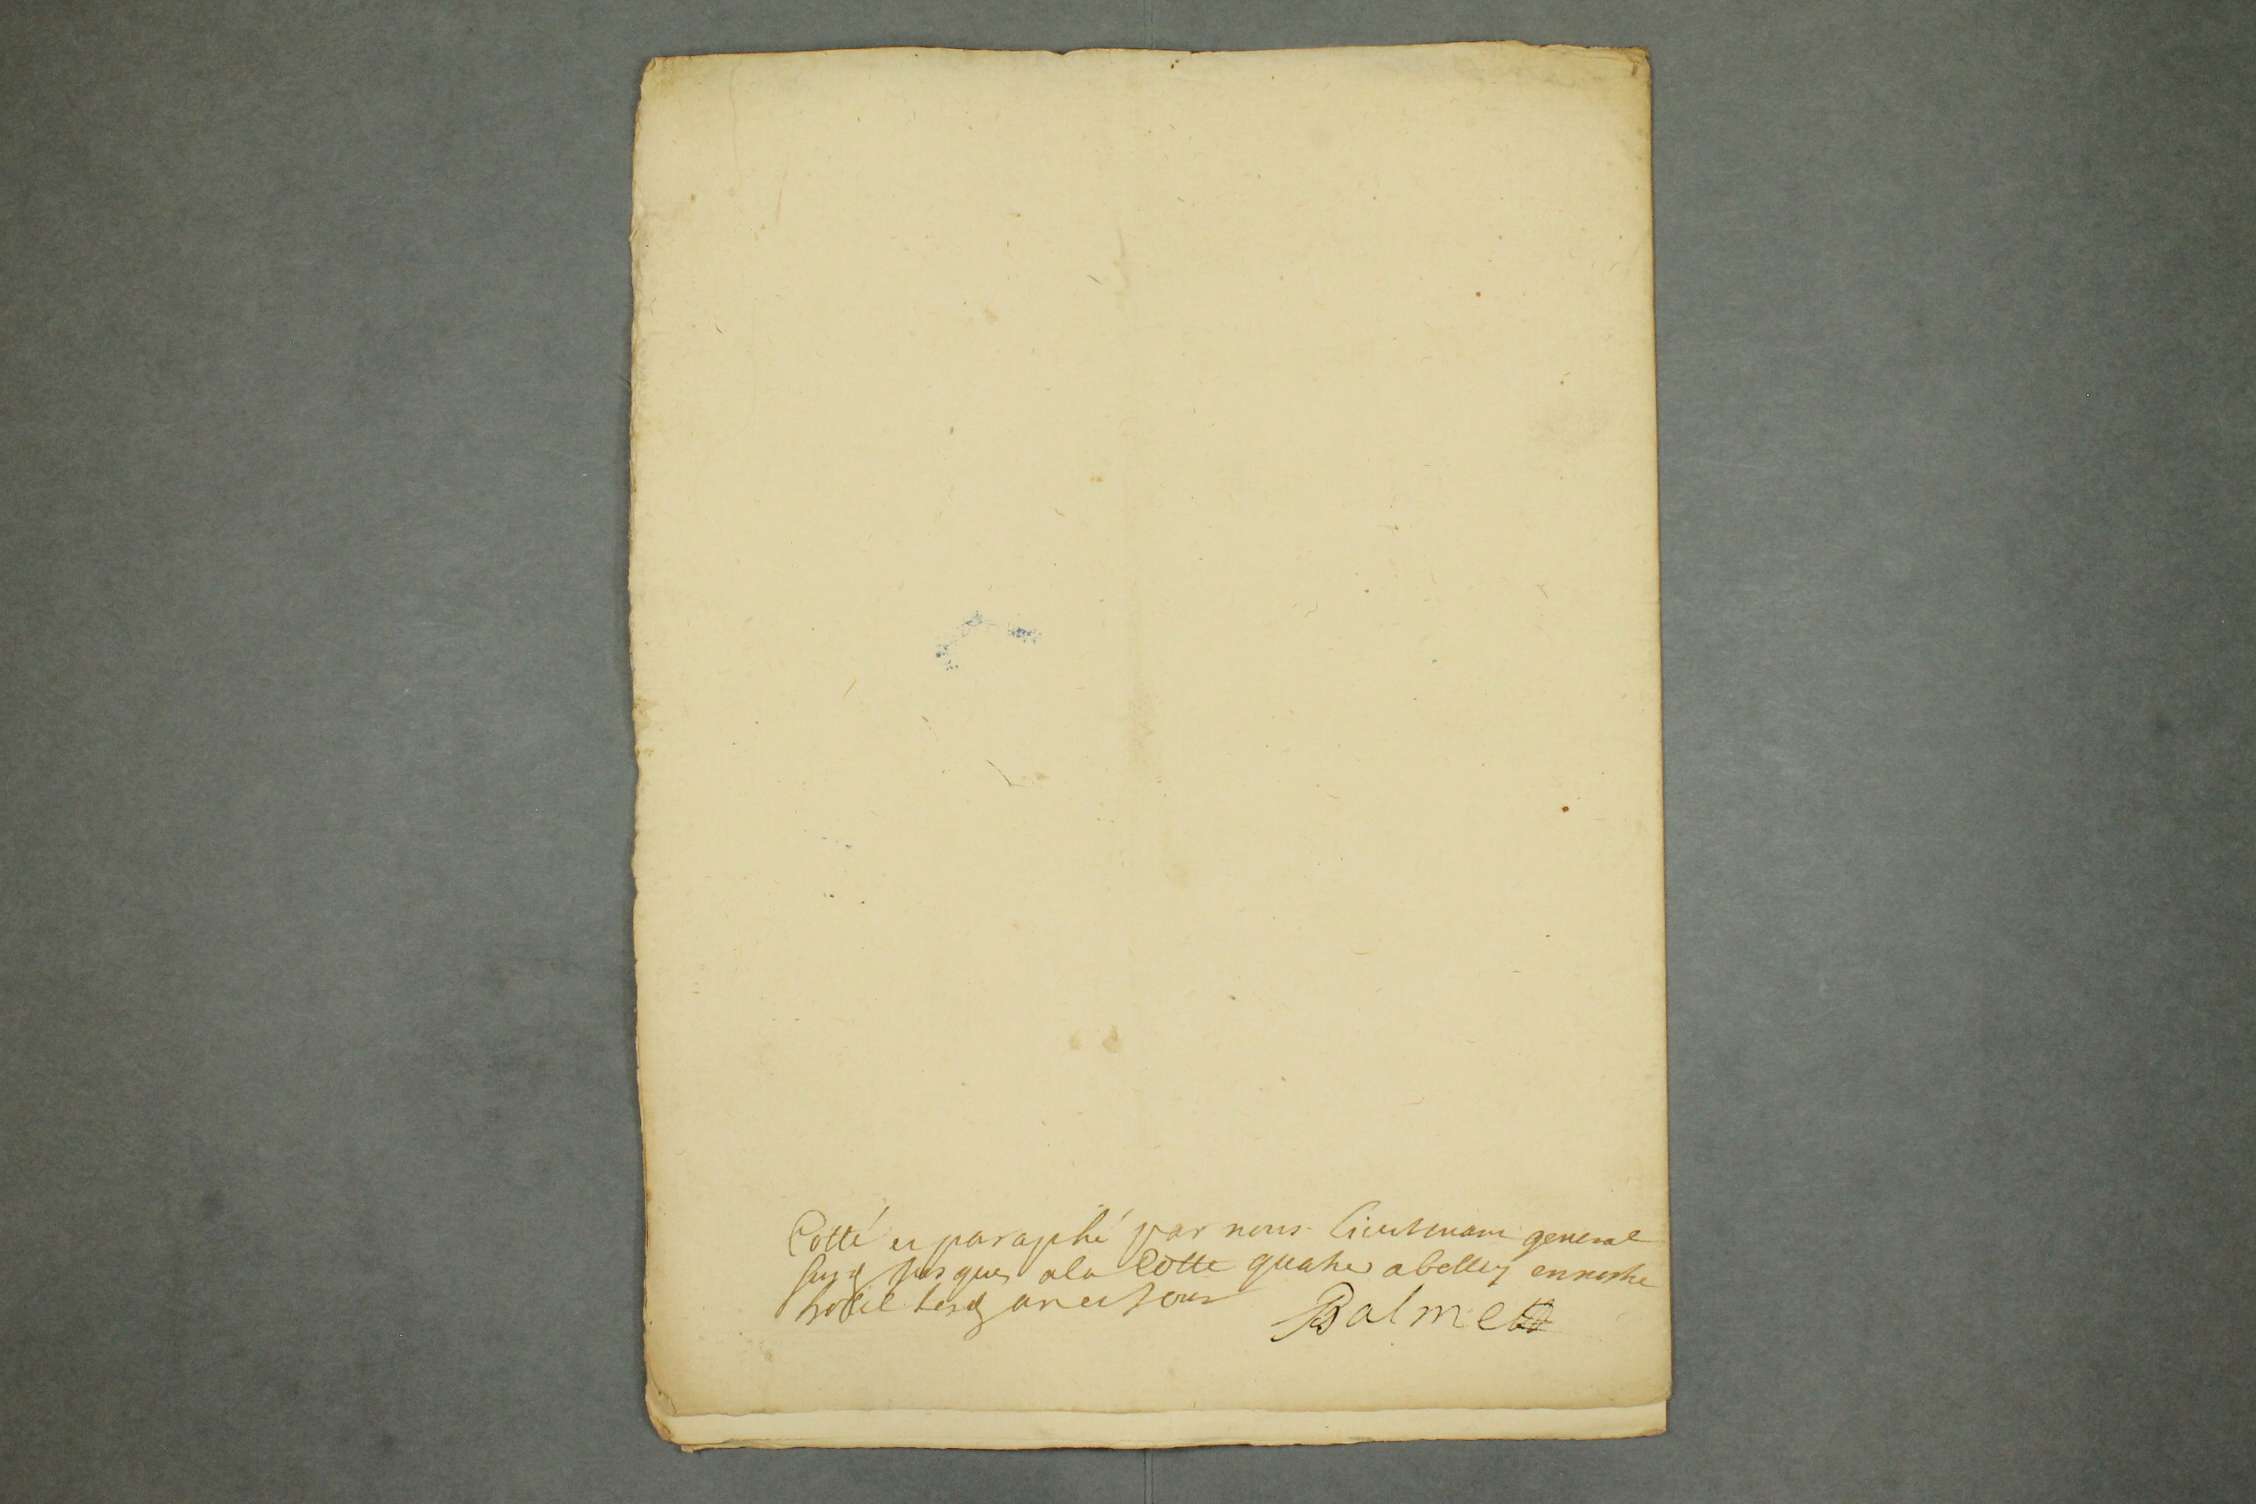 Cotté et paraphé par nous lieutenant general
susd jusques a la Cotte quatre a belley en nostre
hotel lesd an et jour
Balme